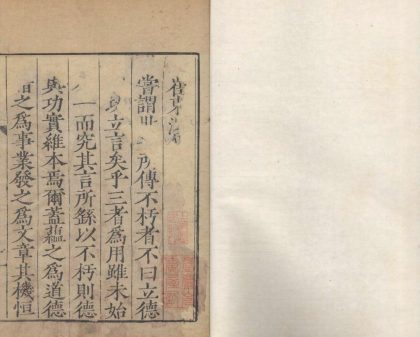 崔東洲
嘗謂世 所傳不朽者不曰立德
立言矣乎三者爲用雖未始
一而究其言所繇以不朽則德
與功實維本焉爾蓋蘊之爲道德
之爲事業發之爲文章其機恒